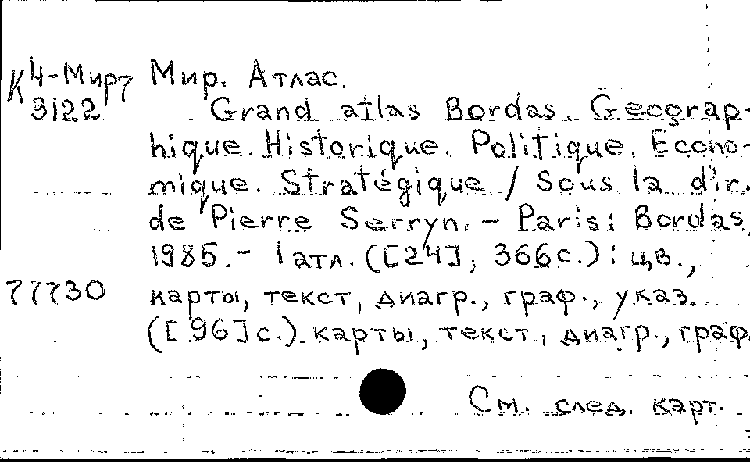 К 4-Мир7
3122
Мир. Атлас.
Grand atlas Bordas. Geograp-
hique. Historique. Politique. Econo-
mique. Stratégique / Sous la dir.
de Pierre Serryn. – Paris: Bordas,
1985. – 1 атл. ([24], 366с.): цв.,
77730
карты, текст, диагр., граф., указ.
([96]с.) карты, текст, диагр., граф.
См. след. карт.